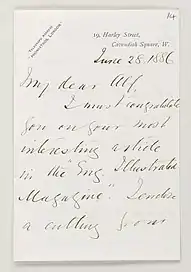 14
TELEGRAPHIC ADDRESS
19, Harley Street,
Cavendish Square, W.
June 28. 1886
My dear Alf,
I must congratulate
you on your most
interesting article
in the "Eng. Illustrated
Magazine". I enclose
a cutting from